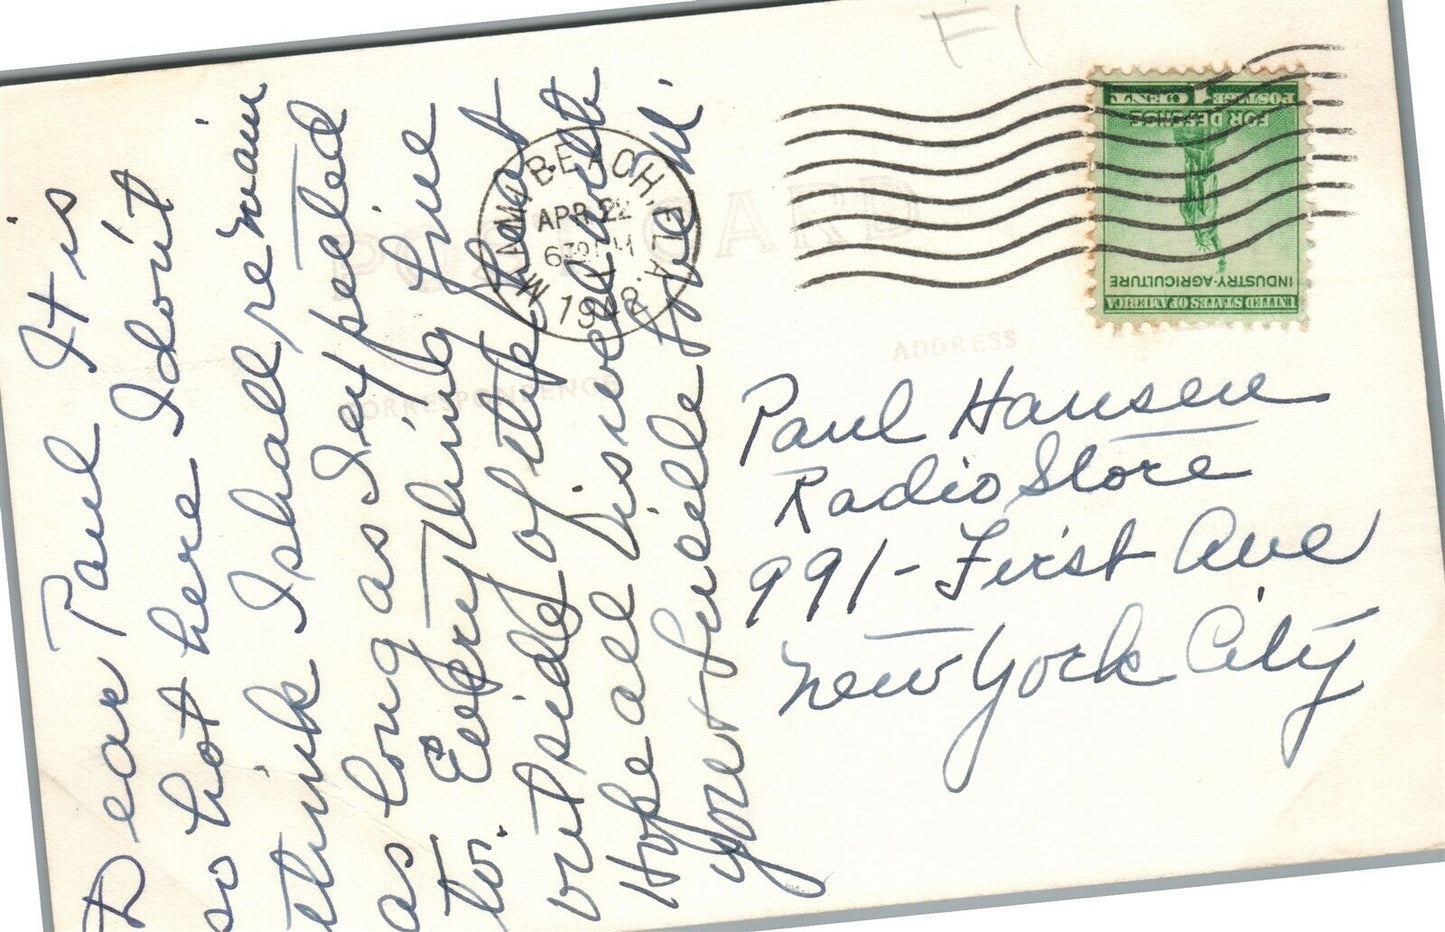 Dear Paul It is
so hot here I don't
think I shall remain
as long as I expected
to. Everything fine
outside of the heat
Hope all is well and
your folks
F1
MIAMI BEACH, FLA.
APR 22
6 30 PM
1942
POST CARD
CORRESPONDENCE
ADDRESS
UNITED STATES OF AMERICA
INDUSTRY-AGRICULTURE
FOR DEFENSE
POSTAGE 1 CENT
Paul Hansen
Radio Store
991 - First Ave
New York City